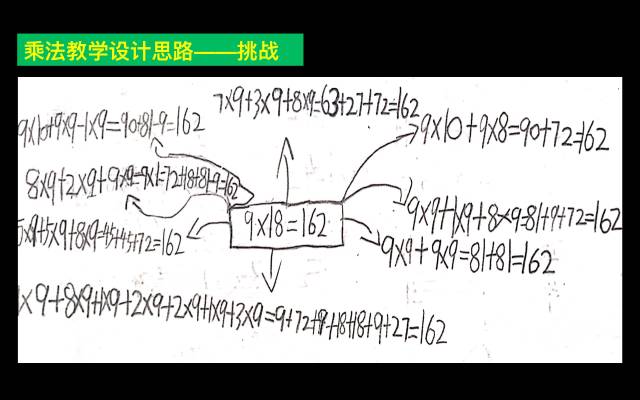 乘法教学设计思路——挑战
7×9+3×9+8×9=63+27+72=162
9×10+9×9-1×9=90+81-9=162
9×10+9×8=90+72=162
8×9+2×9+9×9-9×1=72+18+81-9=162
9×9+1×9+8×9=81+9+72=162
9×18=162
5×9+5×9+8×9=45+45+72=162
9×9+9×9=81+81=162
×9+8×9+1×9+2×9+2×9+1×9+3×9=9+72+9+18+18+9+27=162